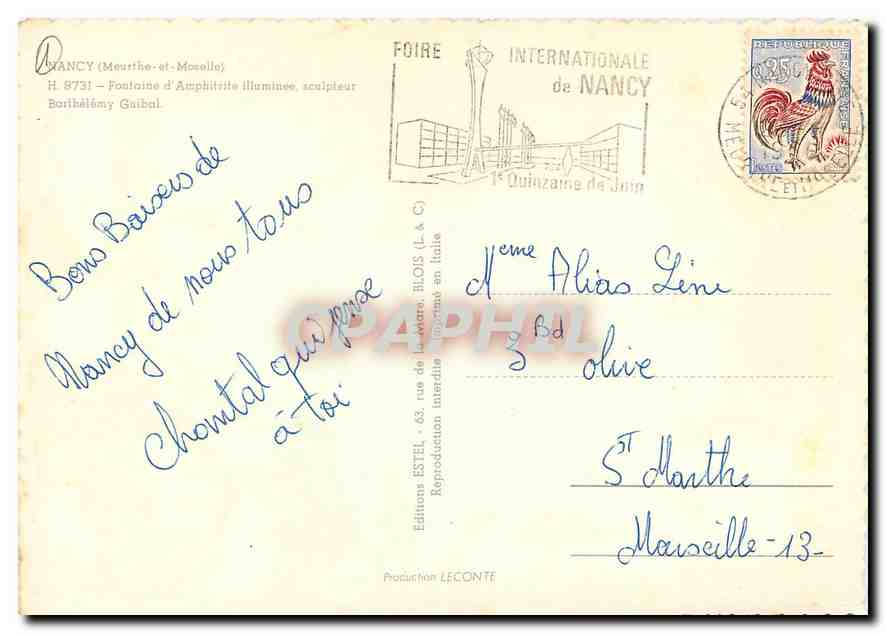 NANCY (Meurthe-et-Moselle)
H. 8731 - Fontaine d'Amphitrite illuminee, sculpteur
Barthélémy Guibal.
FOIRE INTERNATIONALE
de NANCY
1e Quinzaine de Juin
REPUBLIQUE FRANÇAISE
0,25
POSTES
Bons Baisers de
Nancy de nous tous
Chantal qui pense
à toi
Editions ESTEL - 63, rue de la Mare, BLOIS (L. & C)
Reproduction interdite Imprimé en Italie
CPAPHIL
Meme Alias Line
3 Bd olive
ST Marthe
Marseille-13-
Production LECONTE